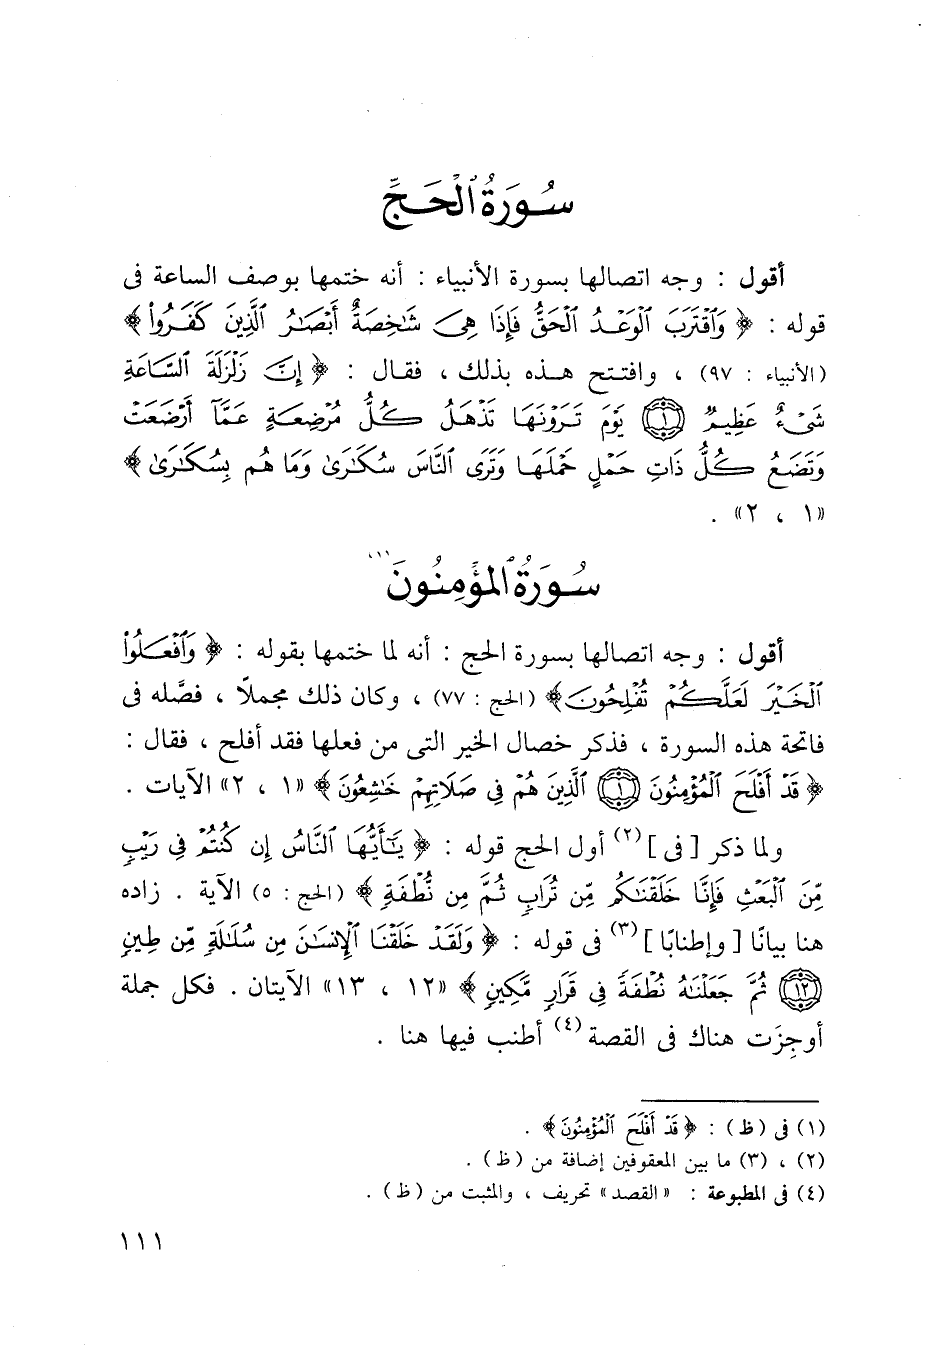 سُورَةُ ٱلْحَجِّ
أقول : وجه اتصالها بسورة الأنبياء : أنه ختمها بوصف الساعة فى
قوله : ﴿ وَٱقْتَرَبَ ٱلْوَعْدُ ٱلْحَقُّ فَإِذَا هِىَ شَٰخِصَةٌ أَبْصَٰرُ ٱلَّذِينَ كَفَرُوا۟ ﴾
(الأنبياء : ٩٧) ، وافتتح هذه بذلك ، فقال : ﴿ إِنَّ زَلْزَلَةَ ٱلسَّاعَةِ
شَىْءٌ عَظِيمٌ ۝١ يَوْمَ تَرَوْنَهَا تَذْهَلُ كُلُّ مُرْضِعَةٍ عَمَّآ أَرْضَعَتْ
وَتَضَعُ كُلُّ ذَاتِ حَمْلٍ حَمْلَهَا وَتَرَى ٱلنَّاسَ سُكَٰرَىٰ وَمَا هُم بِسُكَٰرَىٰ ﴾
«١ ، ٢» .
سُورَةُ ٱلْمُؤْمِنُونَ (١)
أقول : وجه اتصالها بسورة الحج : أنه لما ختمها بقوله : ﴿ وَٱفْعَلُوا۟
ٱلْخَيْرَ لَعَلَّكُمْ تُفْلِحُونَ﴾ (الحج : ٧٧) ، وكان ذلك مجملاً ، فصَّله فى
فاتحة هذه السورة ، فذكر خصال الخير التى من فعلها فقد أفلح ، فقال :
﴿ قَدْ أَفْلَحَ ٱلْمُؤْمِنُونَ ۝١ ٱلَّذِينَ هُمْ فِى صَلَاتِهِمْ خَٰشِعُونَ ﴾ «١ ، ٢» الآيات .
ولما ذكر [ فى ](٢) أول الحج قوله : ﴿ يَٰٓأَيُّهَا ٱلنَّاسُ إِن كُنتُمْ فِى رَيْبٍ
مِّنَ ٱلْبَعْثِ فَإِنَّا خَلَقْنَٰكُم مِّن تُرَابٍ ثُمَّ مِن نُّطْفَةٍ ﴾ (الحج : ٥) الآية . زاده
هنا بيانًا [ وإطنابًا ](٣) فى قوله : ﴿ وَلَقَدْ خَلَقْنَا ٱلْإِنسَٰنَ مِن سُلَٰلَةٍ مِّن طِينٍ
۝١٢ ثُمَّ جَعَلْنَٰهُ نُطْفَةً فِى قَرَارٍ مَّكِينٍ ﴾ «١٢ ، ١٣» الآيتان . فكل جملة
أوجِزَت هناك فى القصة (٤) أطنب فيها هنا .
(١) فى (ظ) : ﴿ قَدْ أَفْلَحَ ٱلْمُؤْمِنُونَ ﴾ .
(٢) ، (٣) ما بين المعقوفين إضافة من (ظ) .
(٤) فى المطبوعة : «القصد» تحريف ، والمثبت من (ظ) .
١١١